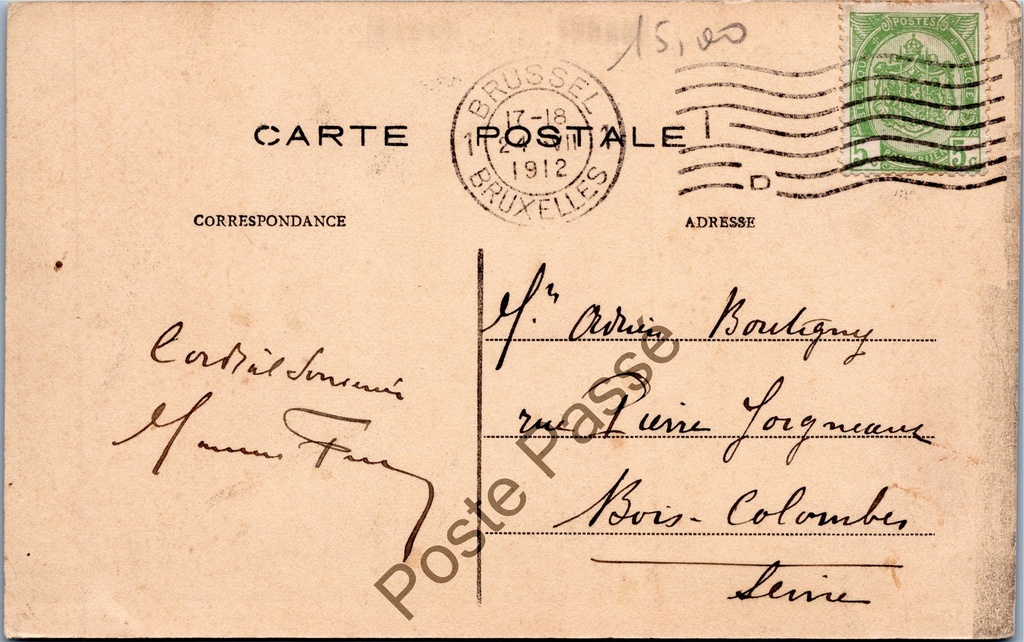 15,00
POSTES
BELGIQUE BELGIË
5c 5c
BRUSSEL
17-18
1 24 VII 1
1912
BRUXELLES
D
CARTE POSTALE
CORRESPONDANCE
ADRESSE
Mr. Adrien Boutigny
rue Pierre Joigneaux
Bois-Colombes
Seine
Cordial Souvenir
Poste Passé